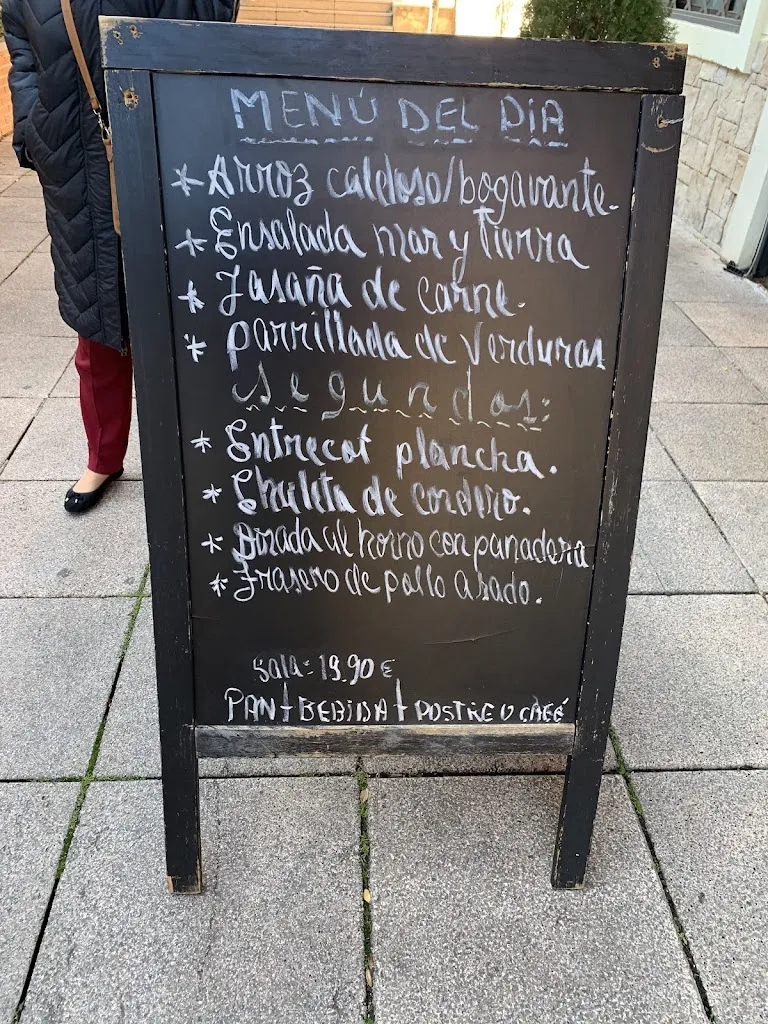 MENÚ DEL DIA
* Arroz caldoso/bogavante.
* Ensalada mar y tierra
* Lasaña de carne.
* Parrillada de Verduras
Segundos:
* Entrecot plancha.
* Chuleta de cordero.
* Dorada al horno con panadera
* Trasero de pollo asado.
Sala: 19,90 €
PAN + BEBIDA + POSTRE O CAFÉ